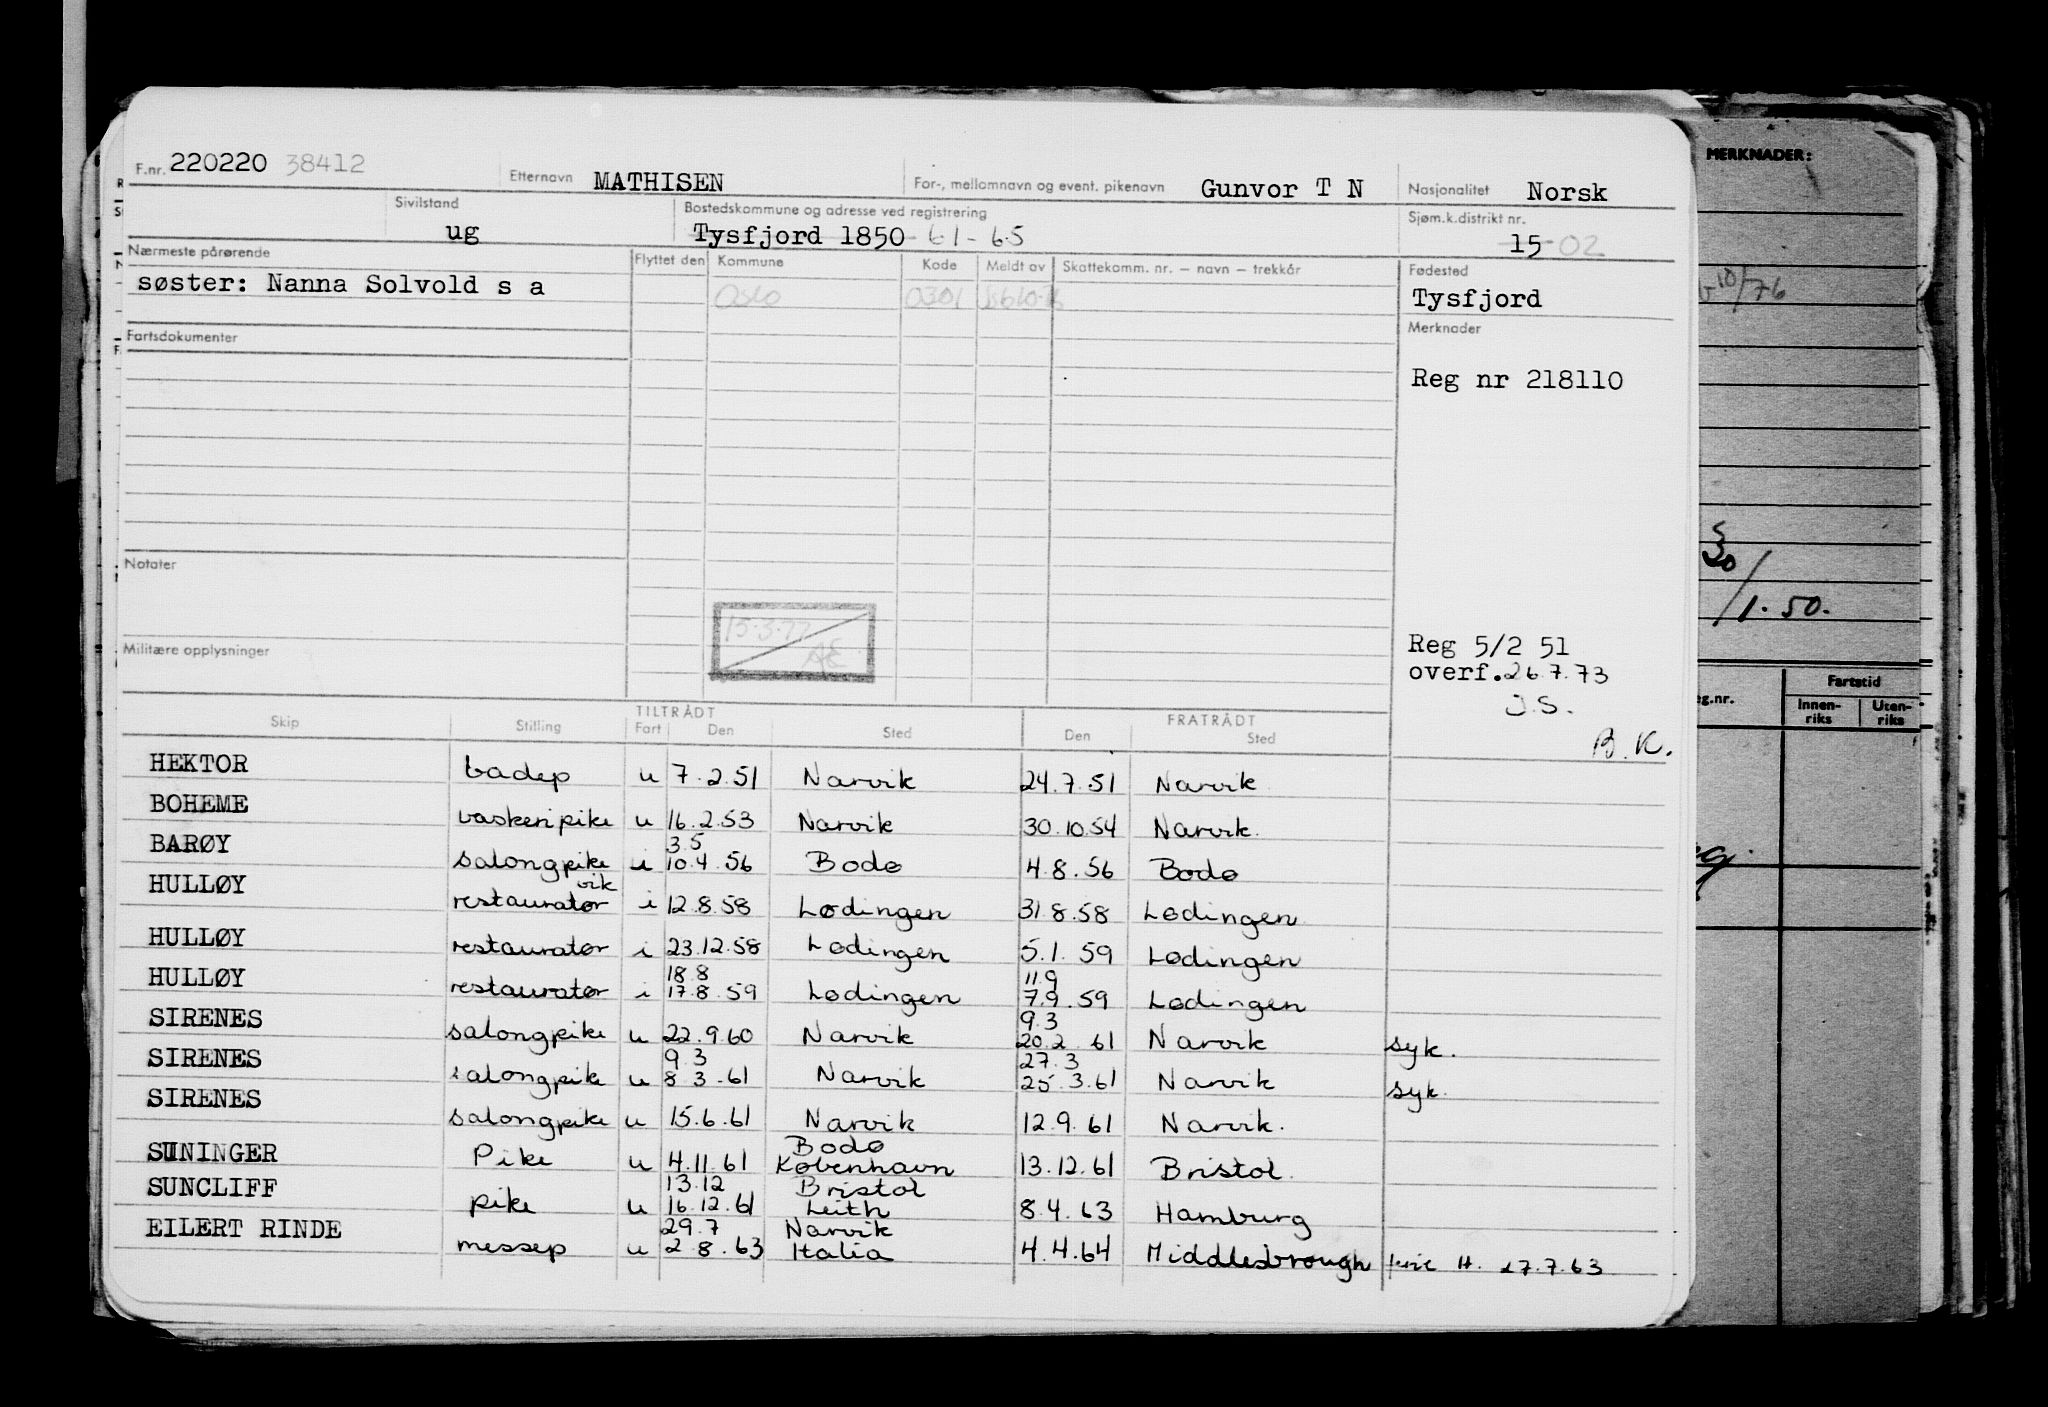 F.nr. 220220 38412 Etternavn MATHISEN For-, mellomnavn og event. pikenavn Gunvor T N Nasjonalitet Norsk
Sivilstand ug Bostedskommune og adresse ved registrering Tysfjord 1850 61-65 Sjøm.k.distrikt nr. 15 02
Nærmeste pårørende Flyttet den Kommune Kode Meldt av Skattekomm. nr. — navn — trekkår Fødested
søster: Nanna Solvold s a Oslo 0301 Tysfjord
Fartsdokumenter Merknader
Reg nr 218110
Notater
15.3.77
Militære opplysninger
Reg 5/2 51
overf. 26.7.73
J.S.
B.K.
TILTRÅDT FRATRÅDT
Skip Stilling Fart Den Sted Den Sted
HEKTOR badep u 7.2.51 Narvik 24.7.51 Narvik
BOHEME vaskeripike u 16.2.53 Narvik 30.10.54 Narvik.
3.5
BARØY salongpike i 10.4.56 Bodø 4.8.56 Bodø
vik
HULLØY restauratør i 12.8.58 Lødingen 31.8.58 Lødingen
HULLØY restauratør i 23.12.58 Lødingen 5.1.59 Lødingen
18.8 11.9
HULLØY restauratør i 17.8.59 Lødingen 7.9.59 Lødingen
9.3
SIRENES salongpike u 22.9.60 Narvik 20.2.61 Narvik syk.
9.3 27.3
SIRENES salongpike u 8.3.61 Narvik 25.3.61 Narvik syk.
SIRENES salongpike u 15.6.61 Narvik 12.9.61 Narvik.
Bodø
SUNINGER Pike u 4.11.61 København 13.12.61 Bristol.
13.12 Bristol
SUNCLIFF pike u 16.12.61 Leith 8.4.63 Hamburg
29.7 Narvik
EILERT RINDE messep u 2.8.63 Italia 4.4.64 Middlesbrough H. 27.7.63
MERKNADER:
10/76
30/1.50.
Fartstid
Innen-
riks
Uten-
riks